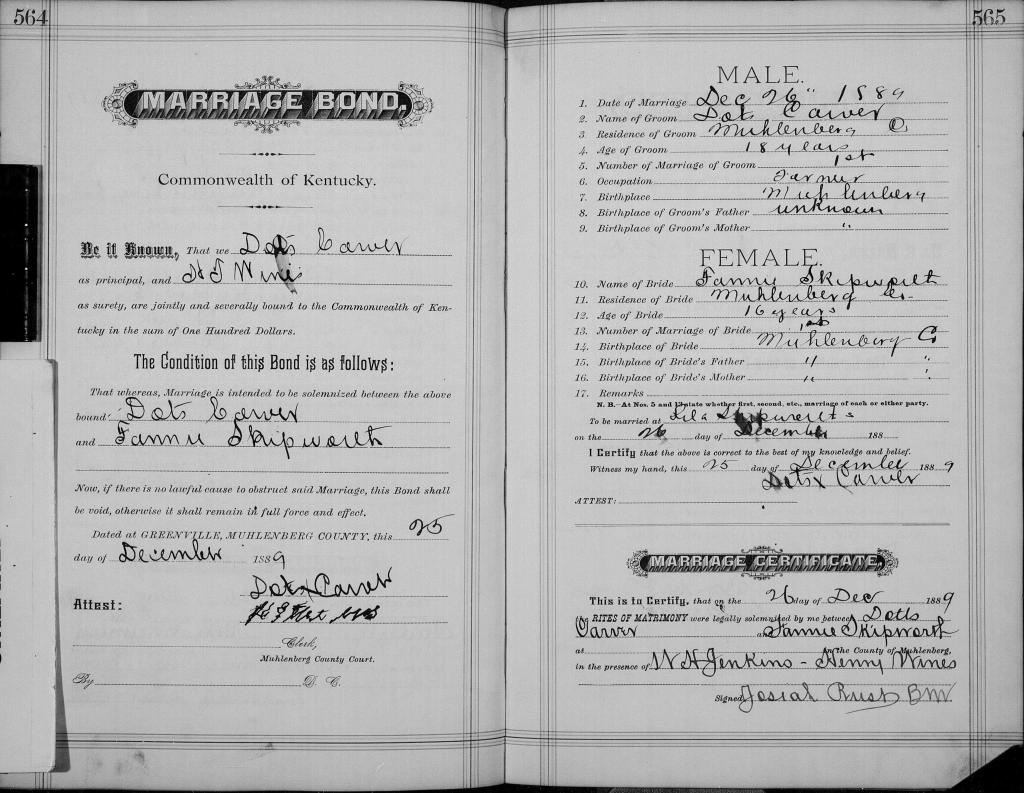 564
MARRIAGE BOND.
Commonwealth of Kentucky.
Be it Known, That we Dots Carver
as principal, and H T Wines
as surety, are jointly and severally bound to the Commonwealth of Ken-
tucky in the sum of One Hundred Dollars.
The Condition of this Bond is as follows:
That whereas, Marriage is intended to be solemnized between the above
bound Dots Carver
and Fannie Skipworth
Now, if there is no lawful cause to obstruct said Marriage, this Bond shall
be void, otherwise it shall remain in full force and effect.
Dated at GREENVILLE, MUHLENBERG COUNTY, this 25
day of December 1889
Dots x Carver
Attest:
Clerk,
Muhlenberg County Court.
By D. C.
565
MALE.
1. Date of Marriage Dec 26" 1889
2. Name of Groom Dots Carver
3. Residence of Groom Muhlenberg Co
4. Age of Groom 18 years
5. Number of Marriage of Groom 1st
6. Occupation Farmer
7. Birthplace Muhlenberg
8. Birthplace of Groom's Father unknown
9. Birthplace of Groom's Mother "
FEMALE.
10. Name of Bride Fannie Skipworth
11. Residence of Bride Muhlenberg Co.
12. Age of Bride 16 years
13. Number of Marriage of Bride 1st
14. Birthplace of Bride Muhlenberg Co
15. Birthplace of Bride's Father " "
16. Birthplace of Bride's Mother " "
17. Remarks
N. B.—At Nos. 5 and 13 state whether first, second, etc., marriage of each or either party.
To be married at Skipworth's
on the 26 day of December 188
I Certify that the above is correct to the best of my knowledge and belief.
Witness my hand, this 25 day of December 1889
Dots x Carver
ATTEST:
MARRIAGE CERTIFICATE.
This is to Certify, that on the 26 day of Dec 1889
RITES OF MATRIMONY were legally solemnized by me between Dotts
Carver and Fannie Skipworth
at in the County of Muhlenberg,
in the presence of W H Jenkins - Henry Wines
Signed, Josiah Rust BM